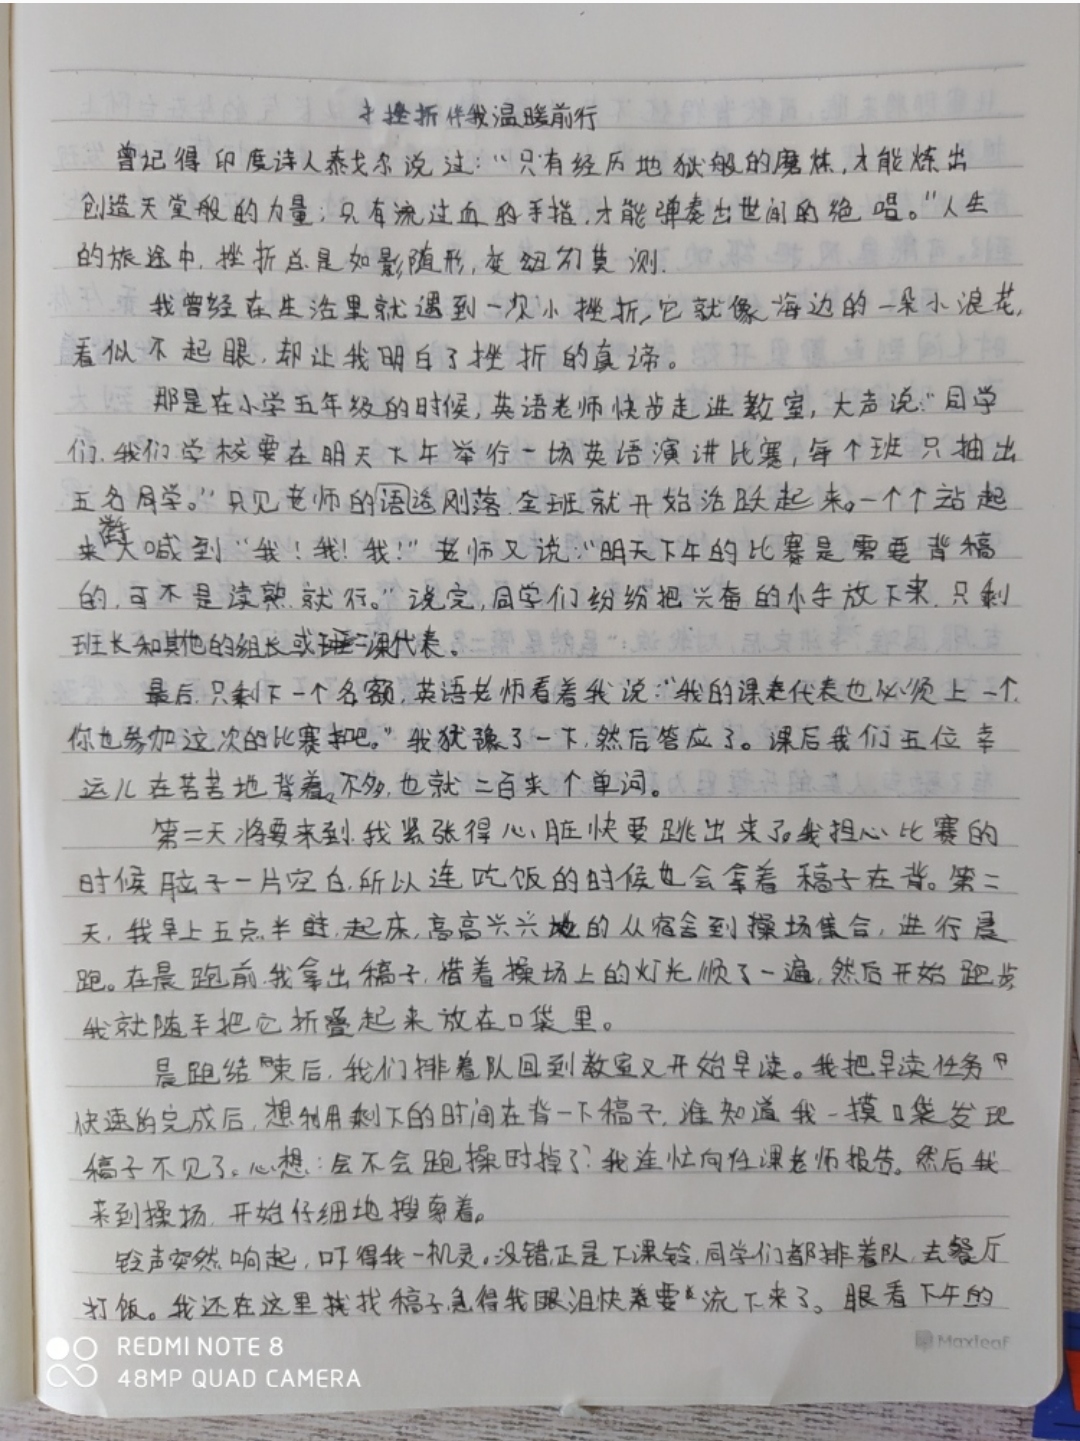 挫折伴我温暖前行
曾记得印度诗人泰戈尔说过:“只有经历地狱般的磨炼,才能炼出
创造天堂般的力量;只有流过血的手指,才能弹奏出世间的绝唱。”人生
的旅途中,挫折总是如影随形,变幻莫测.
我曾经在生活里就遇到一次小挫折,它就像海边的一朵小浪花,
看似不起眼,却让我明白了挫折的真谛。
那是在小学五年级的时候,英语老师快步走进教室,大声说:“同学
们,我们学校要在明天下午举行一场英语演讲比赛,每个班只抽出
五名同学。”只见老师的语速刚落,全班就开始活跃起来。一个个站起
来大喊到“我!我!我!”老师又说:“明天下午的比赛是需要背稿
的,可不是读熟就行。”说完,同学们纷纷把兴奋的小手放下来,只剩
班长和其他的组长或课代表。
最后,只剩下一个名额,英语老师看着我说:“我的课代表也必须上一个,
你也参加这次的比赛吧。”我犹豫了一下,然后答应了。课后我们五位幸
运儿在苦苦地背着。不多,也就二百来个单词。
第二天将要来到,我紧张得心脏快要跳出来了。我担心比赛的
时候脑子一片空白,所以连吃饭的时候也会拿着稿子在背。第二
天,我早上五点半就起床,高高兴兴地的从宿舍到操场集合,进行晨
跑。在晨跑前,我拿出稿子,借着操场上的灯光顺了一遍,然后开始跑步
我就随手把它折叠起来放在口袋里。
晨跑结束后,我们排着队回到教室又开始早读。我把早读任务
快速的完成后,想利用剩下的时间在背一下稿子,谁知道我一摸口袋发现
稿子不见了。心想:会不会跑操时掉了?我连忙向任课老师报告。然后我
来到操场,开始仔细地搜寻着。
铃声突然响起,吓得我一机灵。没错,正是下课铃,同学们都排着队,去餐厅
打饭。我还在这里找找稿子,急得我眼泪快要流下来了。眼看下午的
Maxleaf
REDMI NOTE 8
48MP QUAD CAMERA